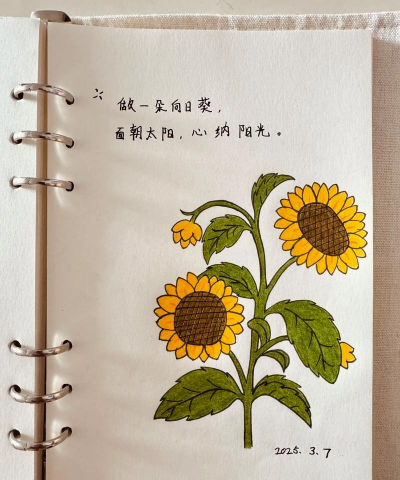 做一朵向日葵,
面朝太阳,心纳阳光。
2025.3.7